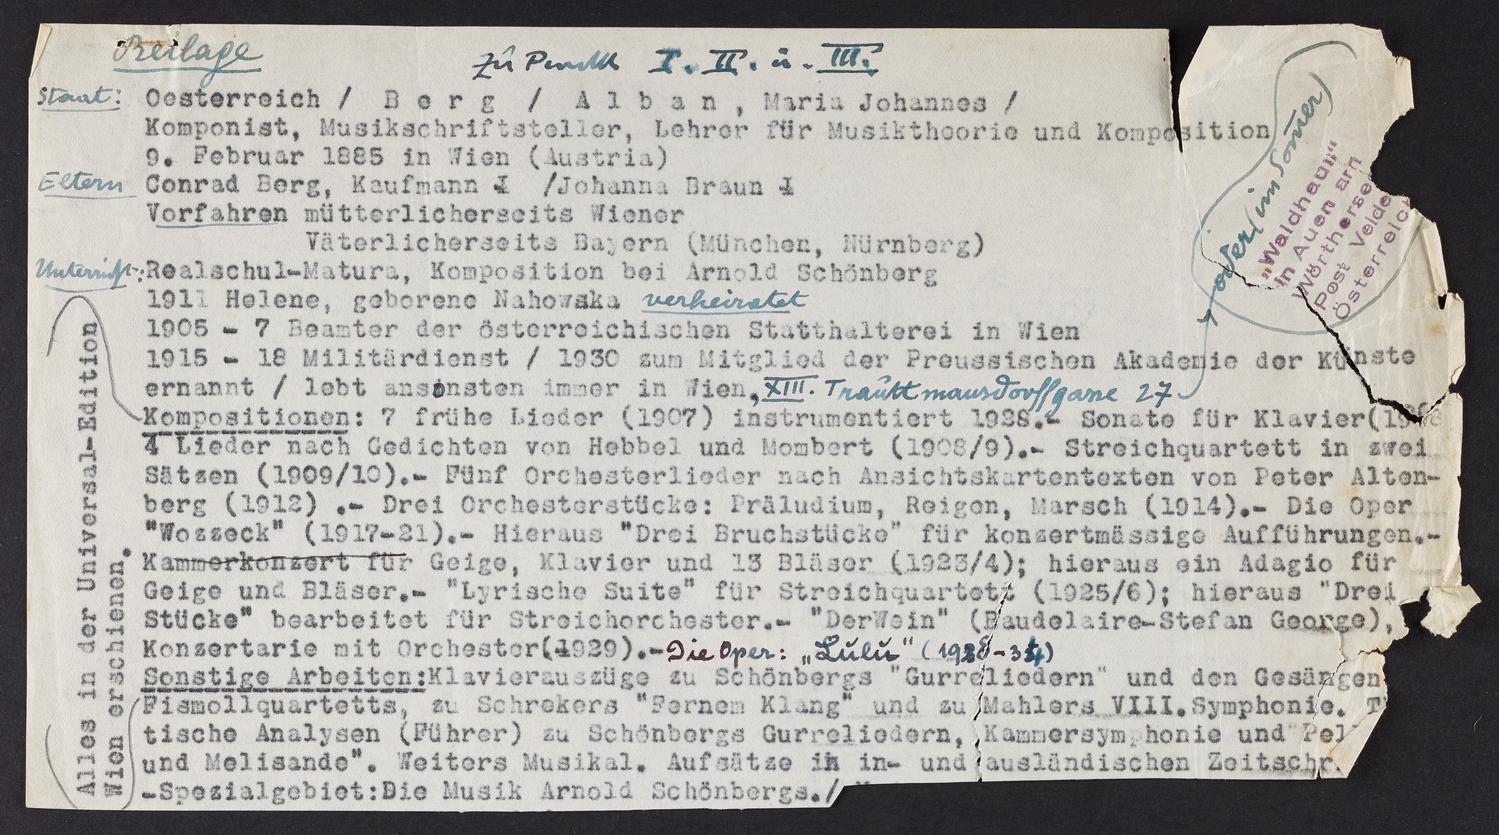 Beilage
Zu Punkt I. II. u. III.
Staat: Oesterreich / B e r g / A l b a n , Maria Johannes /
Komponist, Musikschriftsteller, Lehrer für Musiktheorie und Komposition
9. Februar 1885 in Wien (Austria)
Eltern Conrad Berg, Kaufmann /Johanna Braun
Vorfahren mütterlicherseits Wiener
Väterlicherseits Bayern (München, Nürnberg)
Unterricht: Realschul-Matura, Komposition bei Arnold Schönberg
1911 Helene, geborene Nahowska verheiratet
1905 - 7 Beamter der österreichischen Statthalterei in Wien
1915 - 18 Militärdienst / 1930 zum Mitglied der Preussischen Akademie der Künste
ernannt / lebt ansonsten immer in Wien, XIII. Trauttmansdorffgasse 27
oder (im Somer)
"Waldhaus"
in Auen am
Wörthersee
Post Velde
Österreich
Kompositionen: 7 frühe Lieder (1907) instrumentiert 1928.- Sonate für Klavier(
4 Lieder nach Gedichten von Hebbel und Mombert (1908/9).- Streichquartett in zwei
Sätzen (1909/10).- Fünf Orchesterlieder nach Ansichtskartentexten von Peter Alten-
berg (1912) .- Drei Orchesterstücke: Präludium, Reigen, Marsch (1914).- Die Oper
"Wozzeck" (1917-21).- Hieraus "Drei Bruchstücke" für konzertmässige Aufführungen.-
Kammerkonzert für Geige, Klavier und 13 Bläser (1923/4); hieraus ein Adagio für
Geige und Bläser.- "Lyrische Suite" für Streichquartett (1925/6); hieraus "Drei
Stücke" bearbeitet für Streichorchester.- "DerWein" (Baudelaire-Stefan George),
Konzertarie mit Orchester(1929).- Die Oper: "Lulu" (1928-34)
Sonstige Arbeiten:Klavierauszüge zu Schönbergs "Gurreliedern" und den Gesängen
Fismollquartetts, zu Schrekers "Fernem Klang" und zu Mahlers VIII.Symphonie. T
tische Analysen (Führer) zu Schönbergs Gurreliedern, Kammersymphonie und "Pel
und Melisande". Weiters Musikal. Aufsätze in in- und ausländischen Zeitschr
-Spezialgebiet:Die Musik Arnold Schönbergs./
Alles in der Universal-Edition
Wien erschienen.